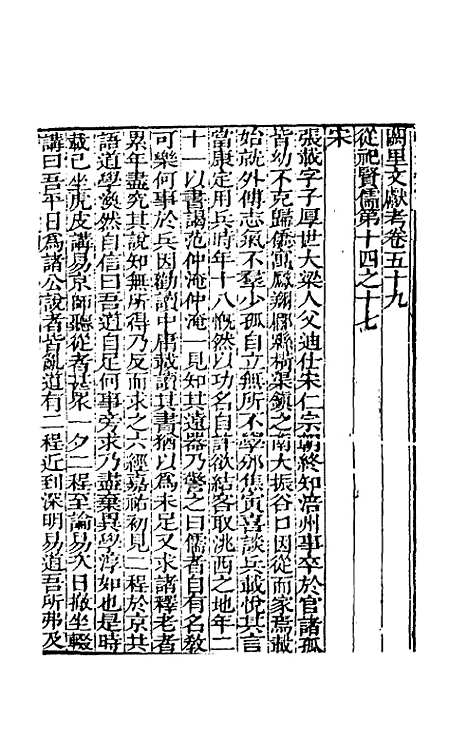 闕里文獻考卷五十九
從祀賢儒第十四之十七
宋
張載字子厚世大梁人父迪仕宋仁宗朝終知涪州事卒於官諸孤
皆幼不克歸僑寓鳳翔郿縣橫渠鎮之南大振谷口因從而家焉載
始就外傅志氣不羣少孤自立無所不學邠焦寅喜談兵載悅其言
當康定用兵時年十八慨然以功名自許欲結客取洮西之地年二
十一以書謁范仲淹仲淹一見知其遠器乃警之曰儒者自有名教
可樂何事於兵因勸讀中庸載讀其書猶以為未足又求諸釋老者
累年盡究其說知無所得乃反而求之六經嘉祐初見二程於京共
語道學渙然自信曰吾道自足何事旁求乃盡棄異學淳如也是時
載已坐虎皮講易京師聽從者甚眾一夕二程至論易次日撤坐輟
講曰吾平日為諸公說者皆亂道有二程近到深明易道吾所弗及